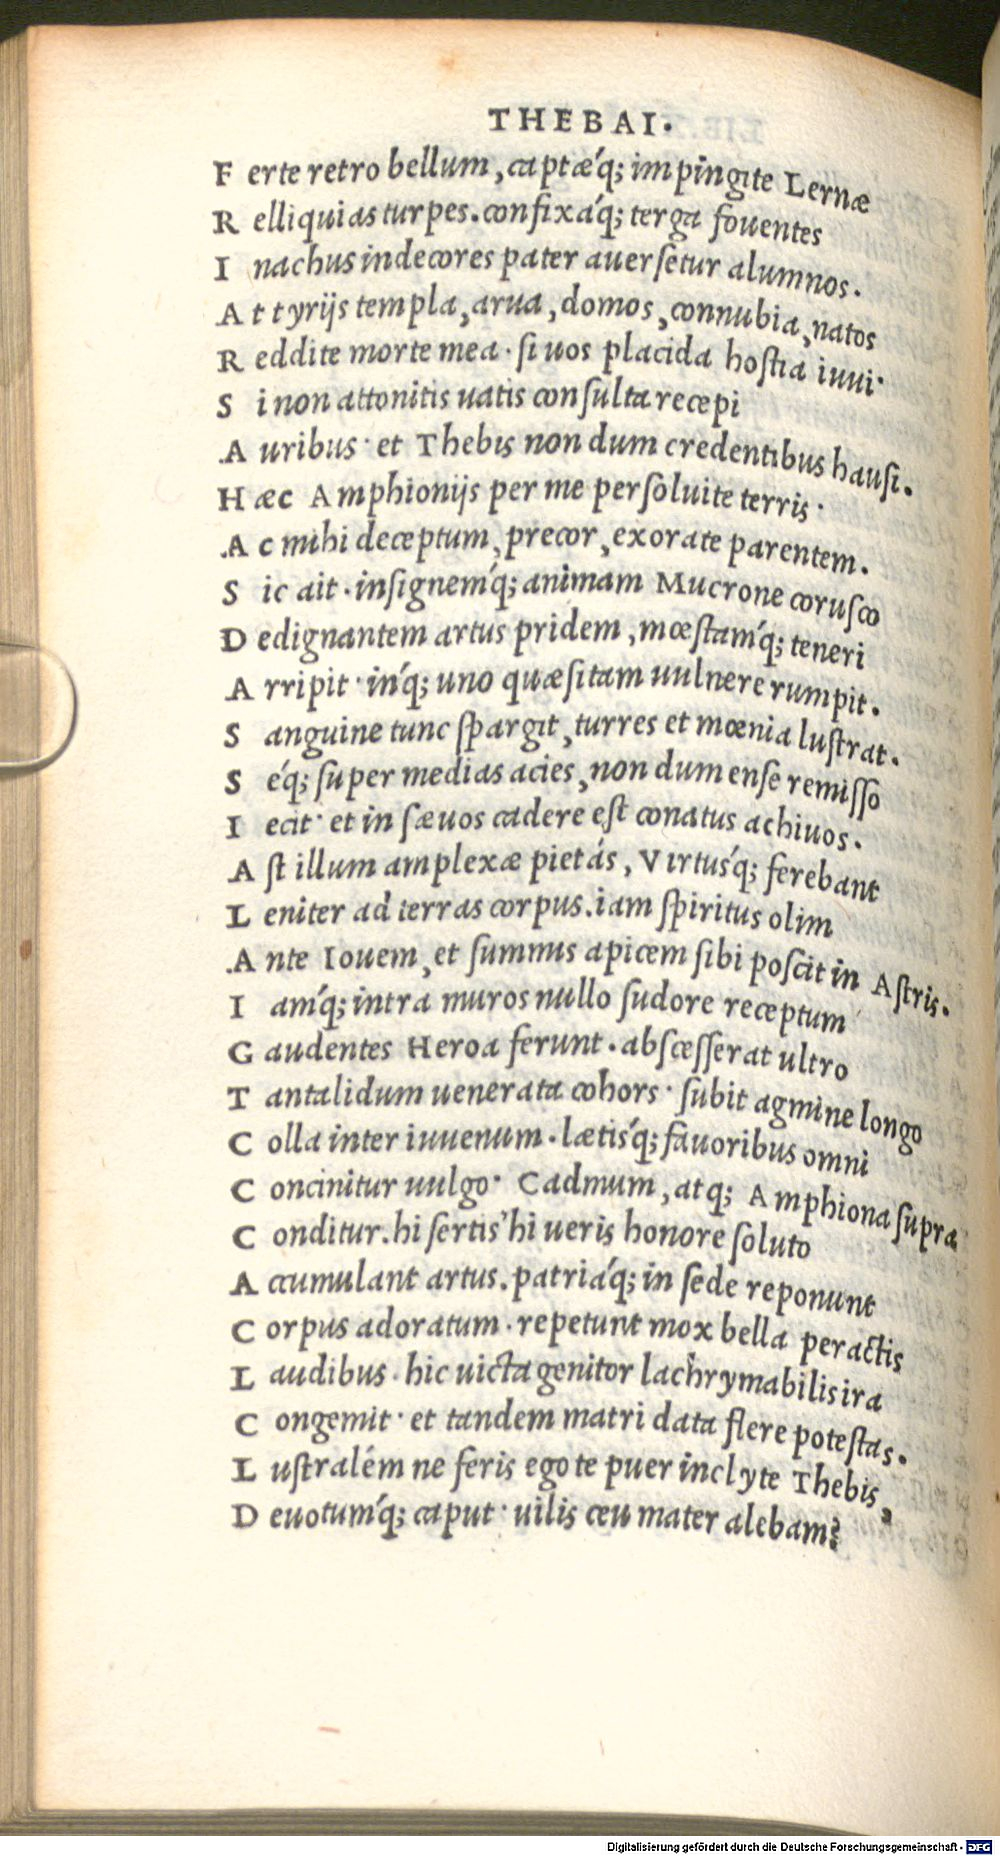 THEBAI.
F erte retro bellum, captæq́; impingite Lernæ
R elliquias turpes. confixáq́; terga fouentes
I nachus indecores pater auerſetur alumnos.
A t tyrijs templa, arua, domos, connubia, natos
R eddite morte mea· ſi uos placida hoſtia iuui·
S i non attonitis uatis conſulta recepi
A uribus· et Thebis non dum credentibus hauſi.
H æc Amphionijs per me perſoluite terris·
A c mihi deceptum, precor, exorate parentem.
S ic ait· inſignemq́; animam Mucrone coruſco
D edignantem artus pridem, mœſtamq́; teneri
A rripit· inq́; uno quæſitam uulnere rumpit.
S anguine tunc ſpargit, turres et mœnia luſtrat.
S eq́; ſuper medias acies, non dum enſe remiſſo
I ecit· et in ſæuos cadere eſt conatus achiuos.
A ſt illum amplexæ pietás, Virtusq́; ferebant
L eniter ad terras corpus. iam ſpiritus olim
A nte Iouem, et ſummis apicem ſibi poſcit in Aſtris.
I amq́; intra muros nullo ſudore receptum
G audentes Heroa ferunt. abſceſſerat ultro
T antalidum uenerata cohors· ſubit agmine longo
C olla inter iuuenum. lætisq́; fauoribus omni
C oncinitur uulgo· Cadmum, atq; Amphiona ſupra
C onditur. hi ſertis' hi ueris honore ſoluto
A ccumulant artus. patriáq́; in ſede reponunt
C orpus adoratum· repetunt mox bella peractis
L audibus· hic uicta genitor lachrymabilis ira
C ongemit· et tandem matri data flere poteſtas.
L uſtralém ne feris ego te puer inclyte Thebis,
D euotumq́; caput· uilis ceu mater alebam?
Digitalisierung gefördert durch die Deutsche Forschungsgemeinschaft - DFG